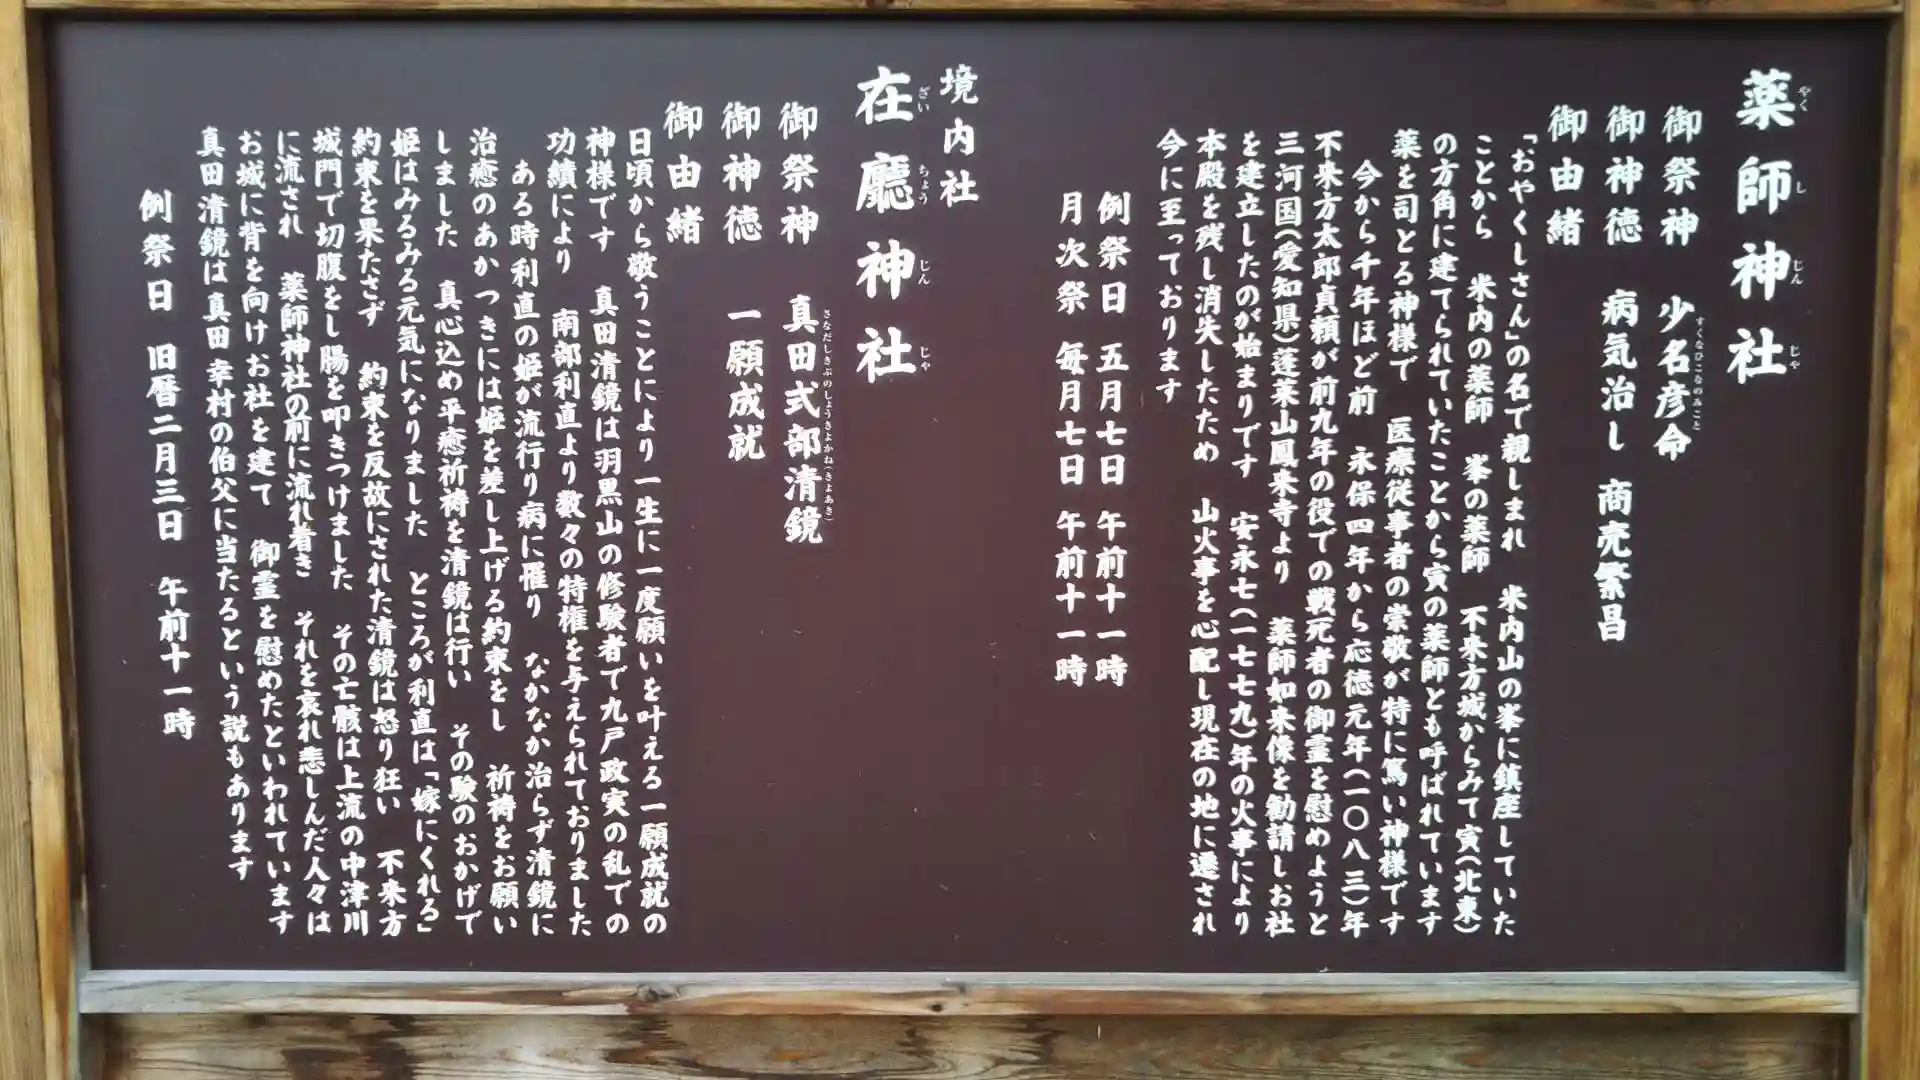 薬師神社
やくしじんじゃ
御祭神　少名彦命
すくなひこなのみこと
御神徳　病気治し　商売繁昌
御由緒
「おやくしさん」の名で親しまれ　米内山の峯に鎮座していた
ことから　米内の薬師　峯の薬師　不来方城からみて寅（北東）
の方角に建てられていたことから寅の薬師とも呼ばれています
薬を司どる神様で　医療従事者の崇敬が特に篤い神様です
今から千年ほど前　永保四年から応徳元年（一〇八三）年
不来方太郎貞頼が前九年の役での戦死者の御霊を慰めようと
三河国（愛知県）蓬莱山鳳来寺より　薬師如来像を勧請しお社
を建立したのが始まりです　安永七（一七七九）年の火事により
本殿を残し消失したため　山火事を心配し現在の地に遷され
今に至っております
例祭日　五月七日　午前十一時
月次祭　毎月七日　午前十一時
境内社
在廳神社
ざいちょうじんじゃ
御祭神　真田式部清鏡
さなだしきぶのしょうきよかね（きよあき）
御神徳　一願成就
御由緒
日頃から敬うことにより一生に一度願いを叶える一願成就の
神様です　真田清鏡は羽黒山の修験者で九戸政実の乱での
功績により　南部利直より数々の特権を与えられておりました
ある時利直の姫が流行り病に罹り　なかなか治らず清鏡に
治癒のあかつきには姫を差し上げる約束をし　祈祷をお願い
しました　真心込め平癒祈祷を清鏡は行い　その験のおかげで
姫はみるみる元気になりました　ところが利直は「嫁にくれる」
約束を果たさず　約束を反故にされた清鏡は怒り狂い　不来方
城門で切腹をし腸を叩きつけました　その亡骸は上流の中津川
に流され　薬師神社の前に流れ着き　それを哀れ悲しんだ人々は
お城に背を向けお社を建て　御霊を慰めたといわれています
真田清鏡は真田幸村の伯父に当たるという説もあります
例祭日　旧暦二月三日　午前十一時